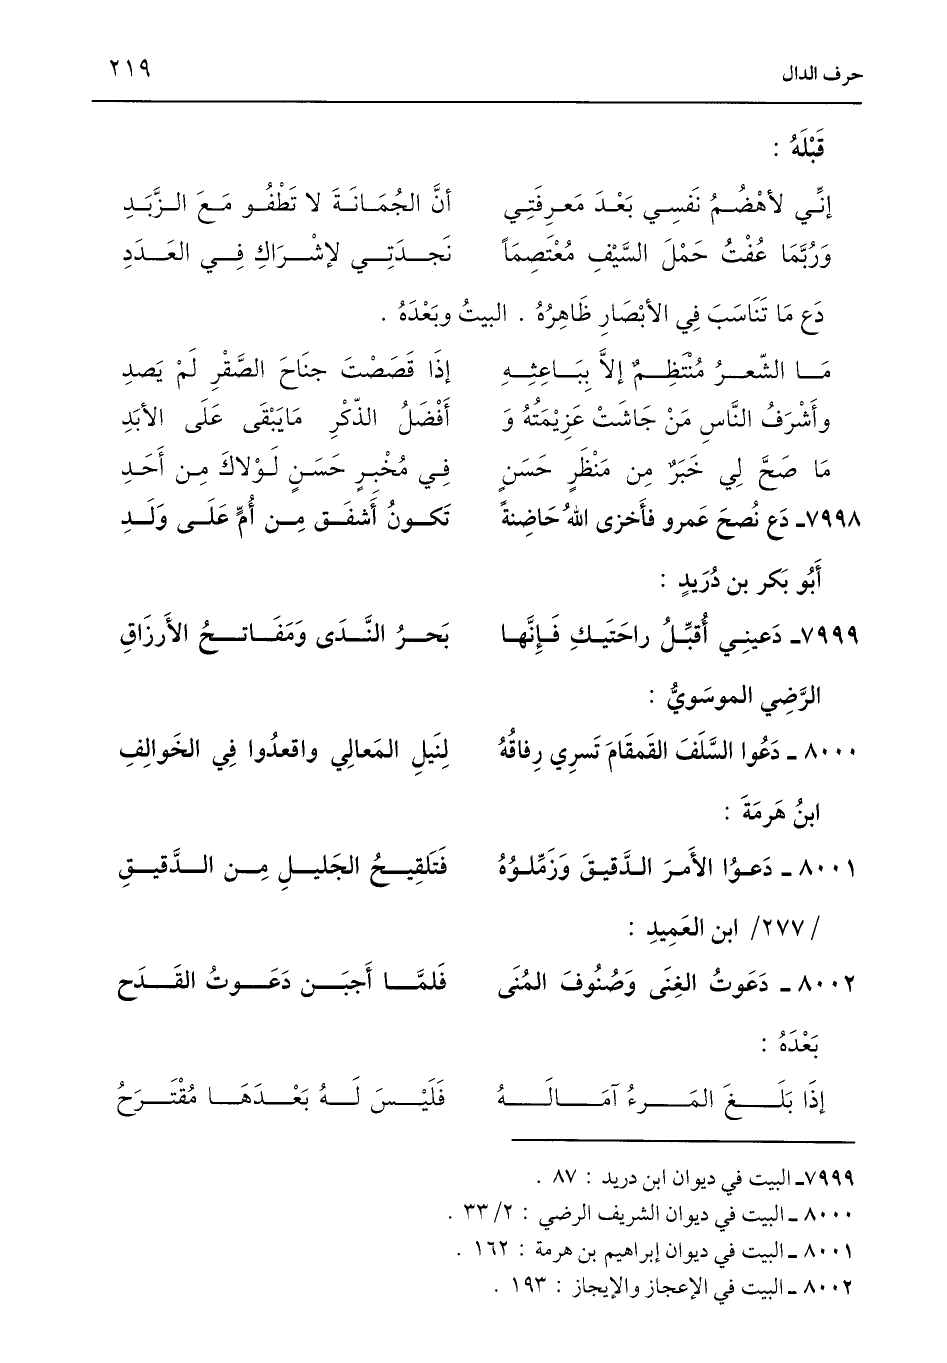 حرف الدال ٢١٩
قَبْلَهُ :
إنِّي لأهْضُمُ نَفسِي بَعْدَ مَعرِفَتِي أنَّ الجُمَانَةَ لا تَطْفُو مَعَ الزَّبَدِ
وَرُبَّمَا عُفْتُ حَمْلَ السَّيْفِ مُعْتَصِمَاً نَجدَتِي لإشْرَاكِ فِي العَدَدِ
دَع مَا تَنَاسَبَ فِي الأبْصَارِ ظَاهِرُهُ . البيتُ وبَعْدَهُ .
مَا الشّعرُ مُنْتَظِمٌ إلاَّ بِبَاعِثِهِ إذَا قَصَصْتَ جنَاحَ الصَّقْرِ لَمْ يَصدِ
وأشْرَفُ النَّاسِ مَنْ جَاشَتْ عَزِيْمَتُهُ وَ أفْضَلُ الذّكْرِ مَايَبْقَى عَلَى الأبَدِ
مَا صَحَّ لِي خَبَرٌ مِن مَنْظَرٍ حَسَنٍ فِي مُخْبِرٍ حَسَنٍ لَوْلاَكَ مِن أَحَدِ
٧٩٩٨ـ دَع نُصحَ عَمرو فأخزى اللهُ حَاضِنةً تَكونُ أشفَق مِن أُمٍّ عَلَى وَلَدِ
أَبُو بَكر بن دُرَيدٍ :
٧٩٩٩ـ دَعيني أُقبِّلُ راحَتَيكِ فَإِنَّها بَحرُ النَّدَى وَمَفَاتحُ الأرزَاقِ
الرَّضِي الموسَويُّ :
٨٠٠٠ ـ دَعُوا السَّلَفَ القَمقَامَ تَسرِي رِفاقُهُ لِنَيلِ المَعالِي واقعدُوا فِي الخَوالِفِ
ابنُ هَرمَةَ :
٨٠٠١ ـ دَعوُا الأمرَ الدَّقيقَ وَزَمِّلوُهُ فَتَلقِيحُ الجَليلِ مِن الدَّقيقِ
/ ٢٧٧/ ابن العَمِيدِ :
٨٠٠٢ ـ دَعَوتُ الغِنَى وَصُنُوفَ المُنَى فَلمَّا أَجبَن دَعَوتُ القَدَح
بَعْدَهُ :
إذَا بَلَغَ المَرءُ آمَالَهُ فَلَيْسَ لَهُ بَعْدَهَا مُقْتَرَحُ
٧٩٩٩ـ البيت في ديوان ابن دريد : ٨٧ .
٨٠٠٠ ـ البيت في ديوان الشريف الرضي : ٢/ ٣٣ .
٨٠٠١ ـ البيت في ديوان إبراهيم بن هرمة : ١٦٢ .
٨٠٠٢ ـ البيت في الإعجاز والإيجاز : ١٩٣ .